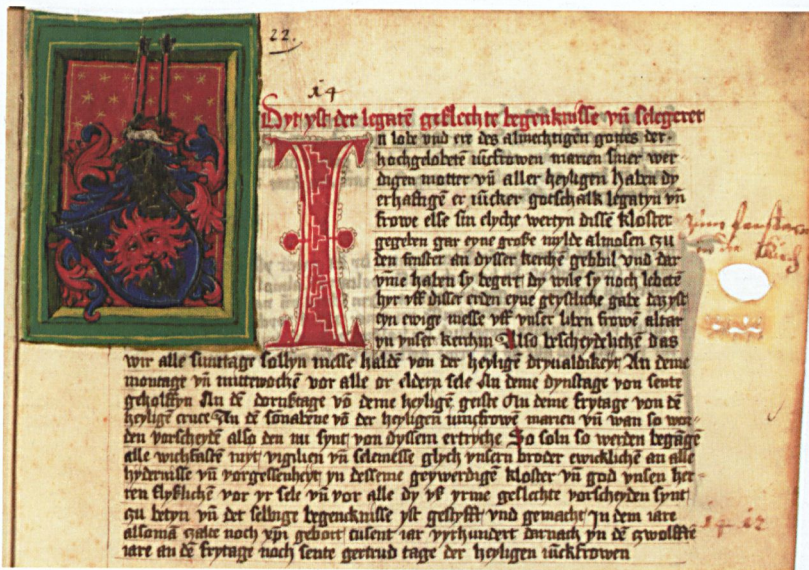 22.
14
Dyt yst der legatē geslechte begenknisse vñ selegeret
In lobe vnd ere des almechtigen gottes der
hochgelobetē iūcfrowen marien siner wer
digen motter vñ aller heyligen Haben dy
erhaftigē er iūcker gotschalk legatyn vñ
frowe else sin elyche wertyn dissē kloster
gegeben gar eyne große mylde almosen czu
den fenster an dysser kerchē gebbil vnd dar
vm̄e haben sy begert dy wile sy noch lebetē
hyr vff disser erden eyne geystliche gabe daz yst
eyn ewige messe vff vnser liben frowē altar
yn vnser kerchin Also bescheydelichē das
wir alle sunttage sollyn messe haldē von der heyligē dryualdikeyt An deme
montage vñ mittwochē vor alle or eldern sele An deme dynstage von sente
geholffyn An dē dornstage vō deme heyligē geiste An deme frytage von dē
heyligē cruce An dē sonabene vō der heyligen iuncfrowē marien vñ wan so wor
den vorscheydē also den nu synt von dyssem ertryche So soln so werden begāgē
alle wichfastē myt vigilien vñ selemesse glych vnsern broder ewicklichē an alle
hydernisse vñ vorgessenheyt yn desseme geywerdigē kloster vñ god vnsen her
ren flyslichē vor yr sele vñ vor alle dy vß yrme geslechte vorscheyden synt
czu betyn vñ det selbige begencknisse yst gestyfft vnd gemacht Jn dem iare
alsomā czalte noch xp̄i gebort tusent iar vyrhundert darnach yn dē czwolfftē
iare an dē frytage noch sente gertrud tage der heyligen iūckfrowen
zum fenster
in der Kirch
1412